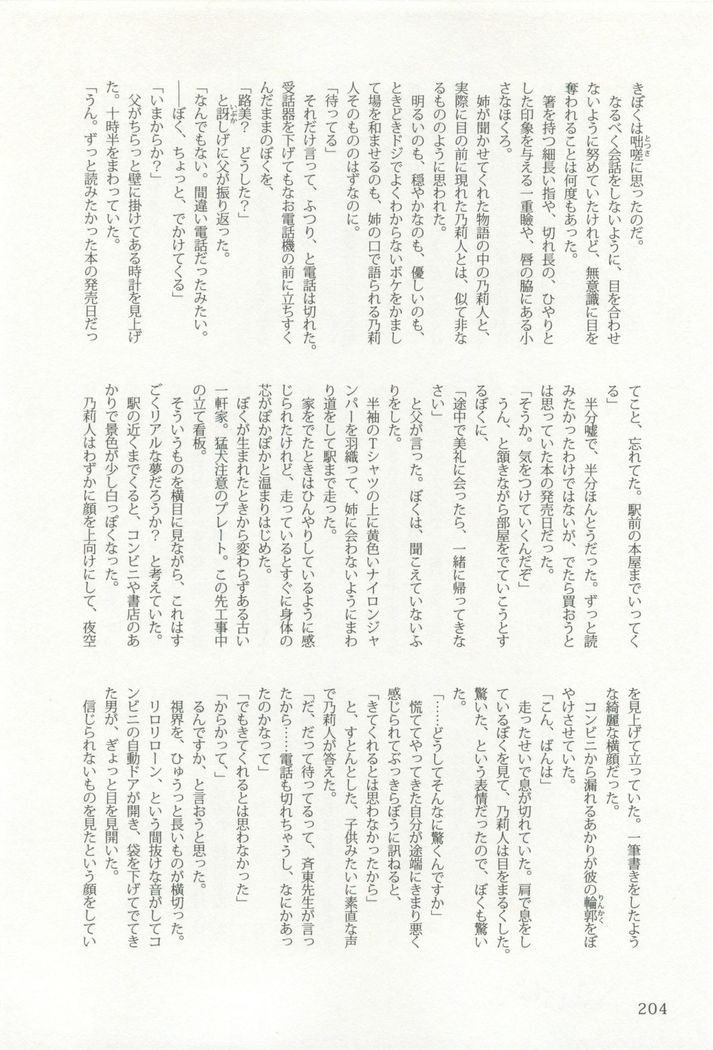 きぼくは咄嗟に思ったのだ。
なるべく会話をしないように、目を合わせ
ないように努めていたけれど、無意識に目を
奪われることは何度もあった。
箸を持つ細長い指や、切れ長の、ひやりと
した印象を与える一重瞼や、唇の脇にある小
さなほくろ。
姉が聞かせてくれた物語の中の乃莉人と、
実際に目の前に現れた乃莉人とは、似て非な
るもののように思われた。
明るいのも、穏やかなのも、優しいのも、
ときどきドジでよくわからないボケをかまし
て場を和ませるのも、姉の口で語られる乃莉
人そのもののはずなのに。
「待ってる」
それだけ言って、ふつり、と電話は切れた。
受話器を下げてもなお電話機の前に立ちすく
んだままのぼくを、
「路美? どうした?」
と訝しげに父が振り返った。
「なんでもない。間違い電話だったみたい。
――ぼく、ちょっと、でかけてくる」
「いまからか?」
父がちらっと壁に掛けてある時計を見上げ
た。十時半をまわっていた。
「うん。ずっと読みたかった本の発売日だっ
てこと、忘れてた。駅前の本屋までいってく
る」
半分嘘で、半分ほんとうだった。ずっと読
みたかったわけではないが、でたら買おうと
は思っていた本の発売日だった。
「そうか。気をつけていくんだぞ」
うん、と頷きながら部屋をでていこうとす
るぼくに、
「途中で美礼に会ったら、一緒に帰ってきな
さい」
と父が言った。ぼくは、聞こえていないふ
りをした。
半袖のTシャツの上に黄色いナイロンジャ
ンパーを羽織って、姉に会わないようにまわ
り道をして駅まで走った。
家をでたときはひんやりしているように感
じられたけれど、走っているとすぐに身体の
芯がぽかぽかと温まりはじめた。
ぼくが生まれたときから変わらずある古い
一軒家。猛犬注意のプレート。この先工事中
の立て看板。
そういうものを横目に見ながら、これはす
ごくリアルな夢だろうか? と考えていた。
駅の近くまでくると、コンビニや書店のあ
かりで景色が少し白っぽくなった。
乃莉人はわずかに顔を上向けにして、夜空
を見上げて立っていた。一筆書きをしたよう
な綺麗な横顔だった。
コンビニから漏れるあかりが彼の輪郭をぼ
やけさせていた。
「こん、ばんは」
走ったせいで息が切れていた。肩で息をし
ているぼくを見て、乃莉人は目をまるくした。
驚いた、という表情だったので、ぼくも驚い
た。
「……どうしてそんなに驚くんですか」
慌ててやってきた自分が途端にきまり悪く
感じられてぶっきらぼうに訊ねると、
「きてくれるとは思わなかったから」
と、すとんとした、子供みたいに素直な声
で乃莉人が答えた。
「だ、だって待ってるって、斉東先生が言っ
たから……電話も切れちゃうし、なにかあっ
たのかなって」
「でもきてくれるとは思わなかった」
「からかって、」
るんですか、と言おうと思った。
視界を、ひゅうっと長いものが横切った。
リロリローン、という間抜けな音がしてコ
ンビニの自動ドアが開き、袋を下げてでてき
た男が、ぎょっと目を見開いた。
信じられないものを見たという顔をしてい
204